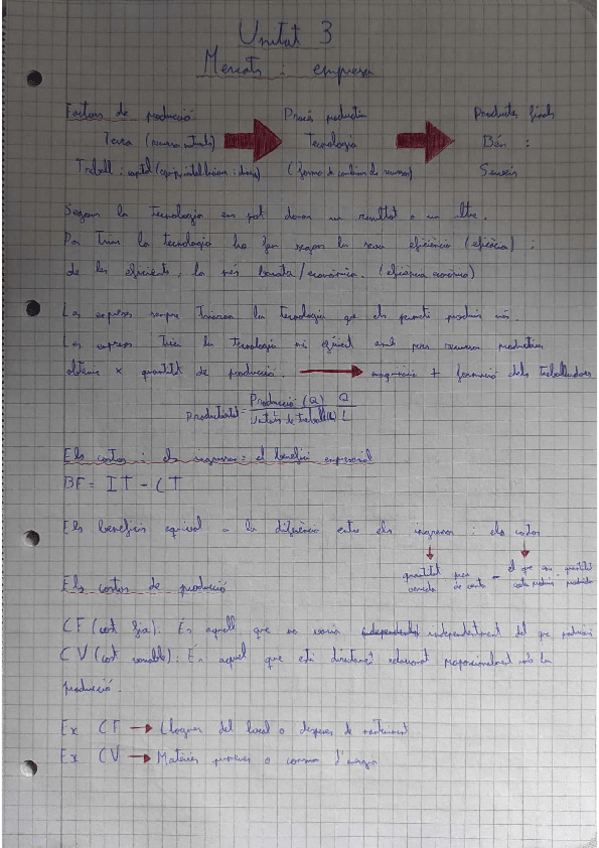 Unitat 3
Mercats i empresa
Factors de producció Procés productiu Productes finals
Terra (recursos naturals) Tecnologia Béns i
Treball i capital (equip, intel·lectual i diners) (forma de combinar els recursos) Serveis
Segons la Tecnologia em pot donar un resultat o un altre.
Per triar la tecnologia ho fan segons la seva eficiència (eficàcia) i
de les eficients, la més barata/econòmica. (eficiència econòmica)
Les empreses sempre triaran la tecnologia que els permeti produir més.
Les empreses trien la Tecnologia més eficient amb pocs recursos productius
obtenir x quantitat de producció. maquinària + formació dels treballadors
Productivitat = Producció (Q) / Unitats de treball (L) Q / L
Els costos i els ingressos: el benefici empresarial
BF = IT - CT
Els beneficis equival a la diferència entre els ingressos i els costos
quantitat venuda preu de venta el que em costa produir quantitat produïda
Els costos de producció
CF (cost fix). És aquell que no varia independentment del que produeixi
CV (cost variable): És aquel que està directament relacionat proporcionalment amb la
producció.
Ex CF Lloguer del local o despeses de manteniment
Ex CV Matèries primeres o consum d'energia